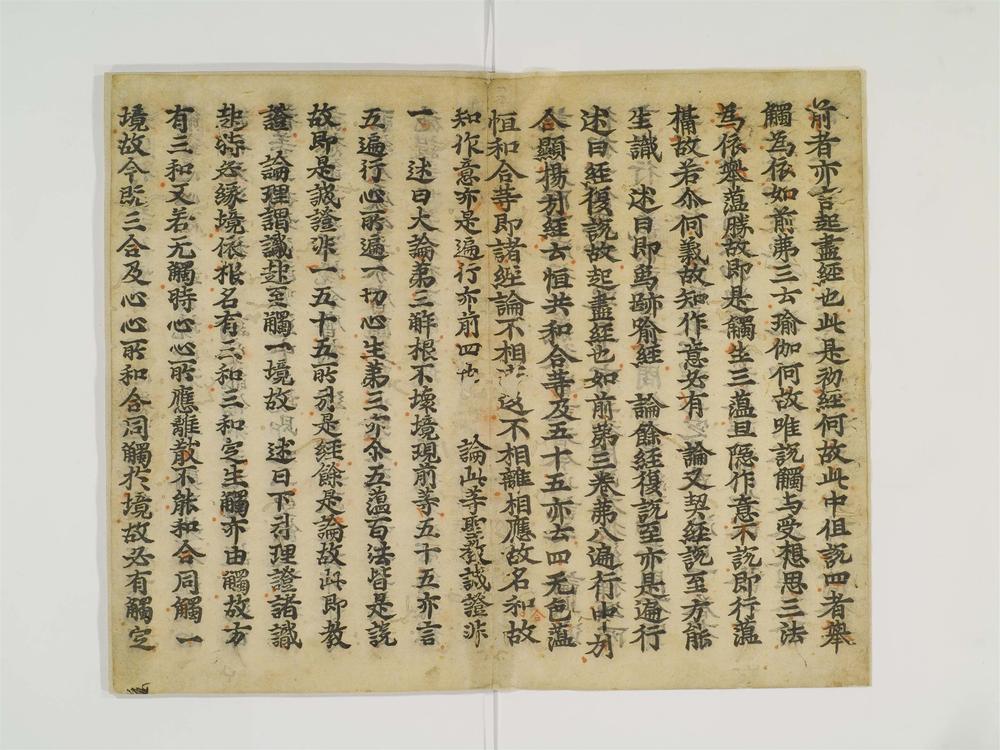 前者亦言起盡經也此是初經何故此中但説四者舉
觸為依如前弟三云瑜伽何故唯説觸与受想思三法
為依舉蘊勝故即是觸生三蘊且隱作意不説即行蘊
攝故若尒何義故知作意必有 論又契經説至方能
生識 述曰即為跡喻經 論餘經復説至亦是遍行
述曰經復説故起盡經也如前第三卷弟八遍行中列
合顯揚引經云恒共和合等及五十五亦云四无色蘊
恒和合等即諸經論不相 不相離相應故名和合故
知作意亦是遍行亦前四 論此等聖教誠證非
一 述曰大論弟三解根不壞境現前等五十五亦言
五遍行心所遍一切心生弟三亦尒五蘊百法皆是説
故即是誠證非一五十五所引是經餘是論故此即教
證 論理謂識起至觸一境故 述曰下引理證諸識
起時必緣境依根名有三和三和定生觸亦由觸故方
有三和又若无觸時心心所應離散不能和合同觸一
境故今既三合及心心所和合同觸於境故必有觸定